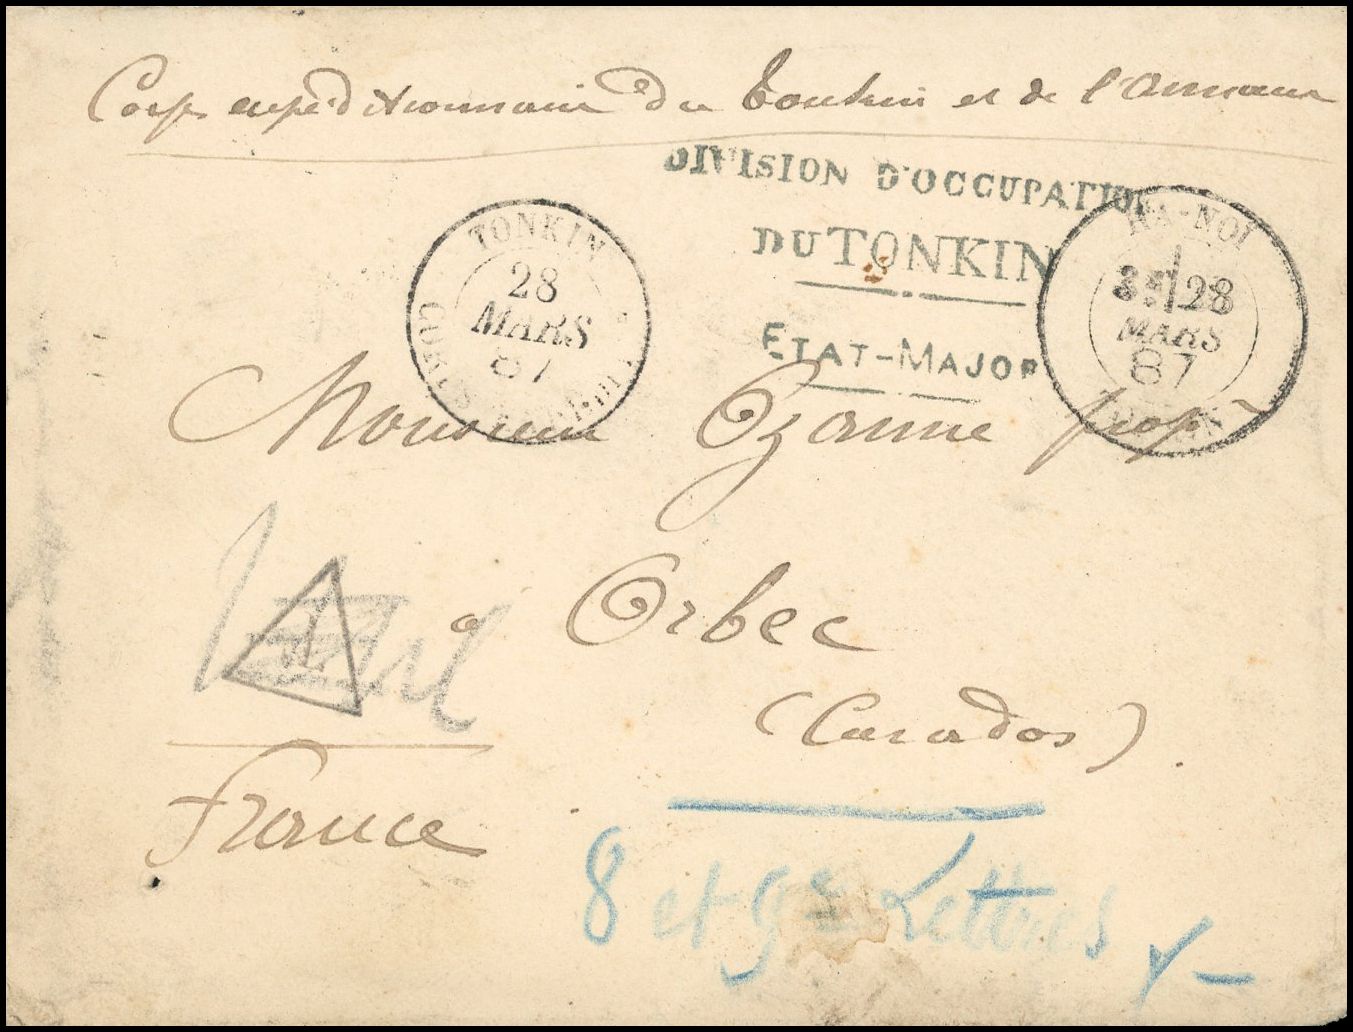 Corps expéditionnaire du Tonkin et de l'Annam
DIVISION D'OCCUPATION
DU TONKIN
ETAT-MAJOR
TONKIN
28
MARS
87
HA-NOI
28
MARS
87
Monsieur Ozanne prop
à Orbec
(Calvados)
France
T
8 et 9e Lettres